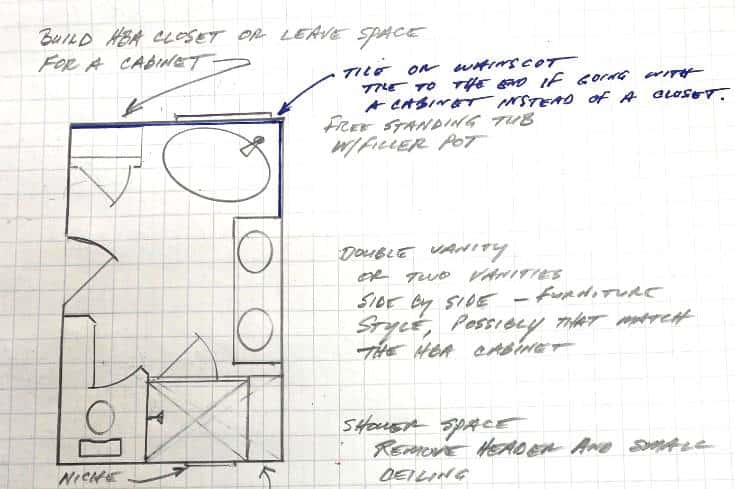 BUILD HBA CLOSET OR LEAVE SPACE
FOR A CABINET
TILE OR WAINSCOT
TILE TO THE END IF GOING WITH
A CABINET INSTEAD OF A CLOSET.
FREE STANDING TUB
W/FILLER POT
DOUBLE VANITY
OR TWO VANITIES
SIDE BY SIDE - FURNITURE
STYLE, POSSIBLY THAT MATCH
THE HBA CABINET
SHOWER SPACE
REMOVE HEADER AND SMALL
CEILING
NICHE